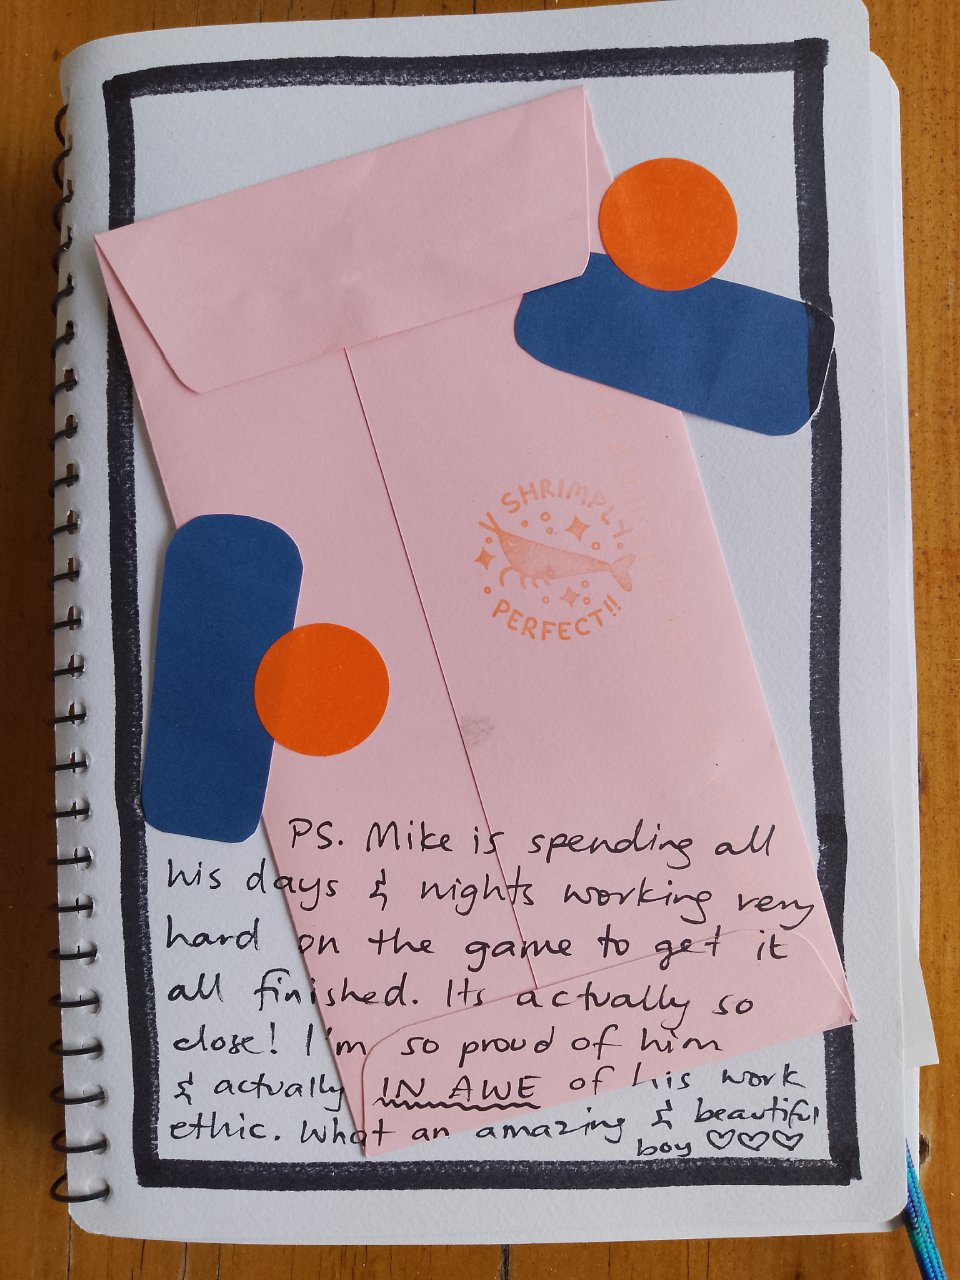 SHRIMPLY
PERFECT!!
PS. Mike is spending all
his days & nights working very
hard on the game to get it
all finished. Its actually so
close! I'm so proud of him
& actually IN AWE of his work
ethic. What an amazing & beautiful
boy ♡♡♡